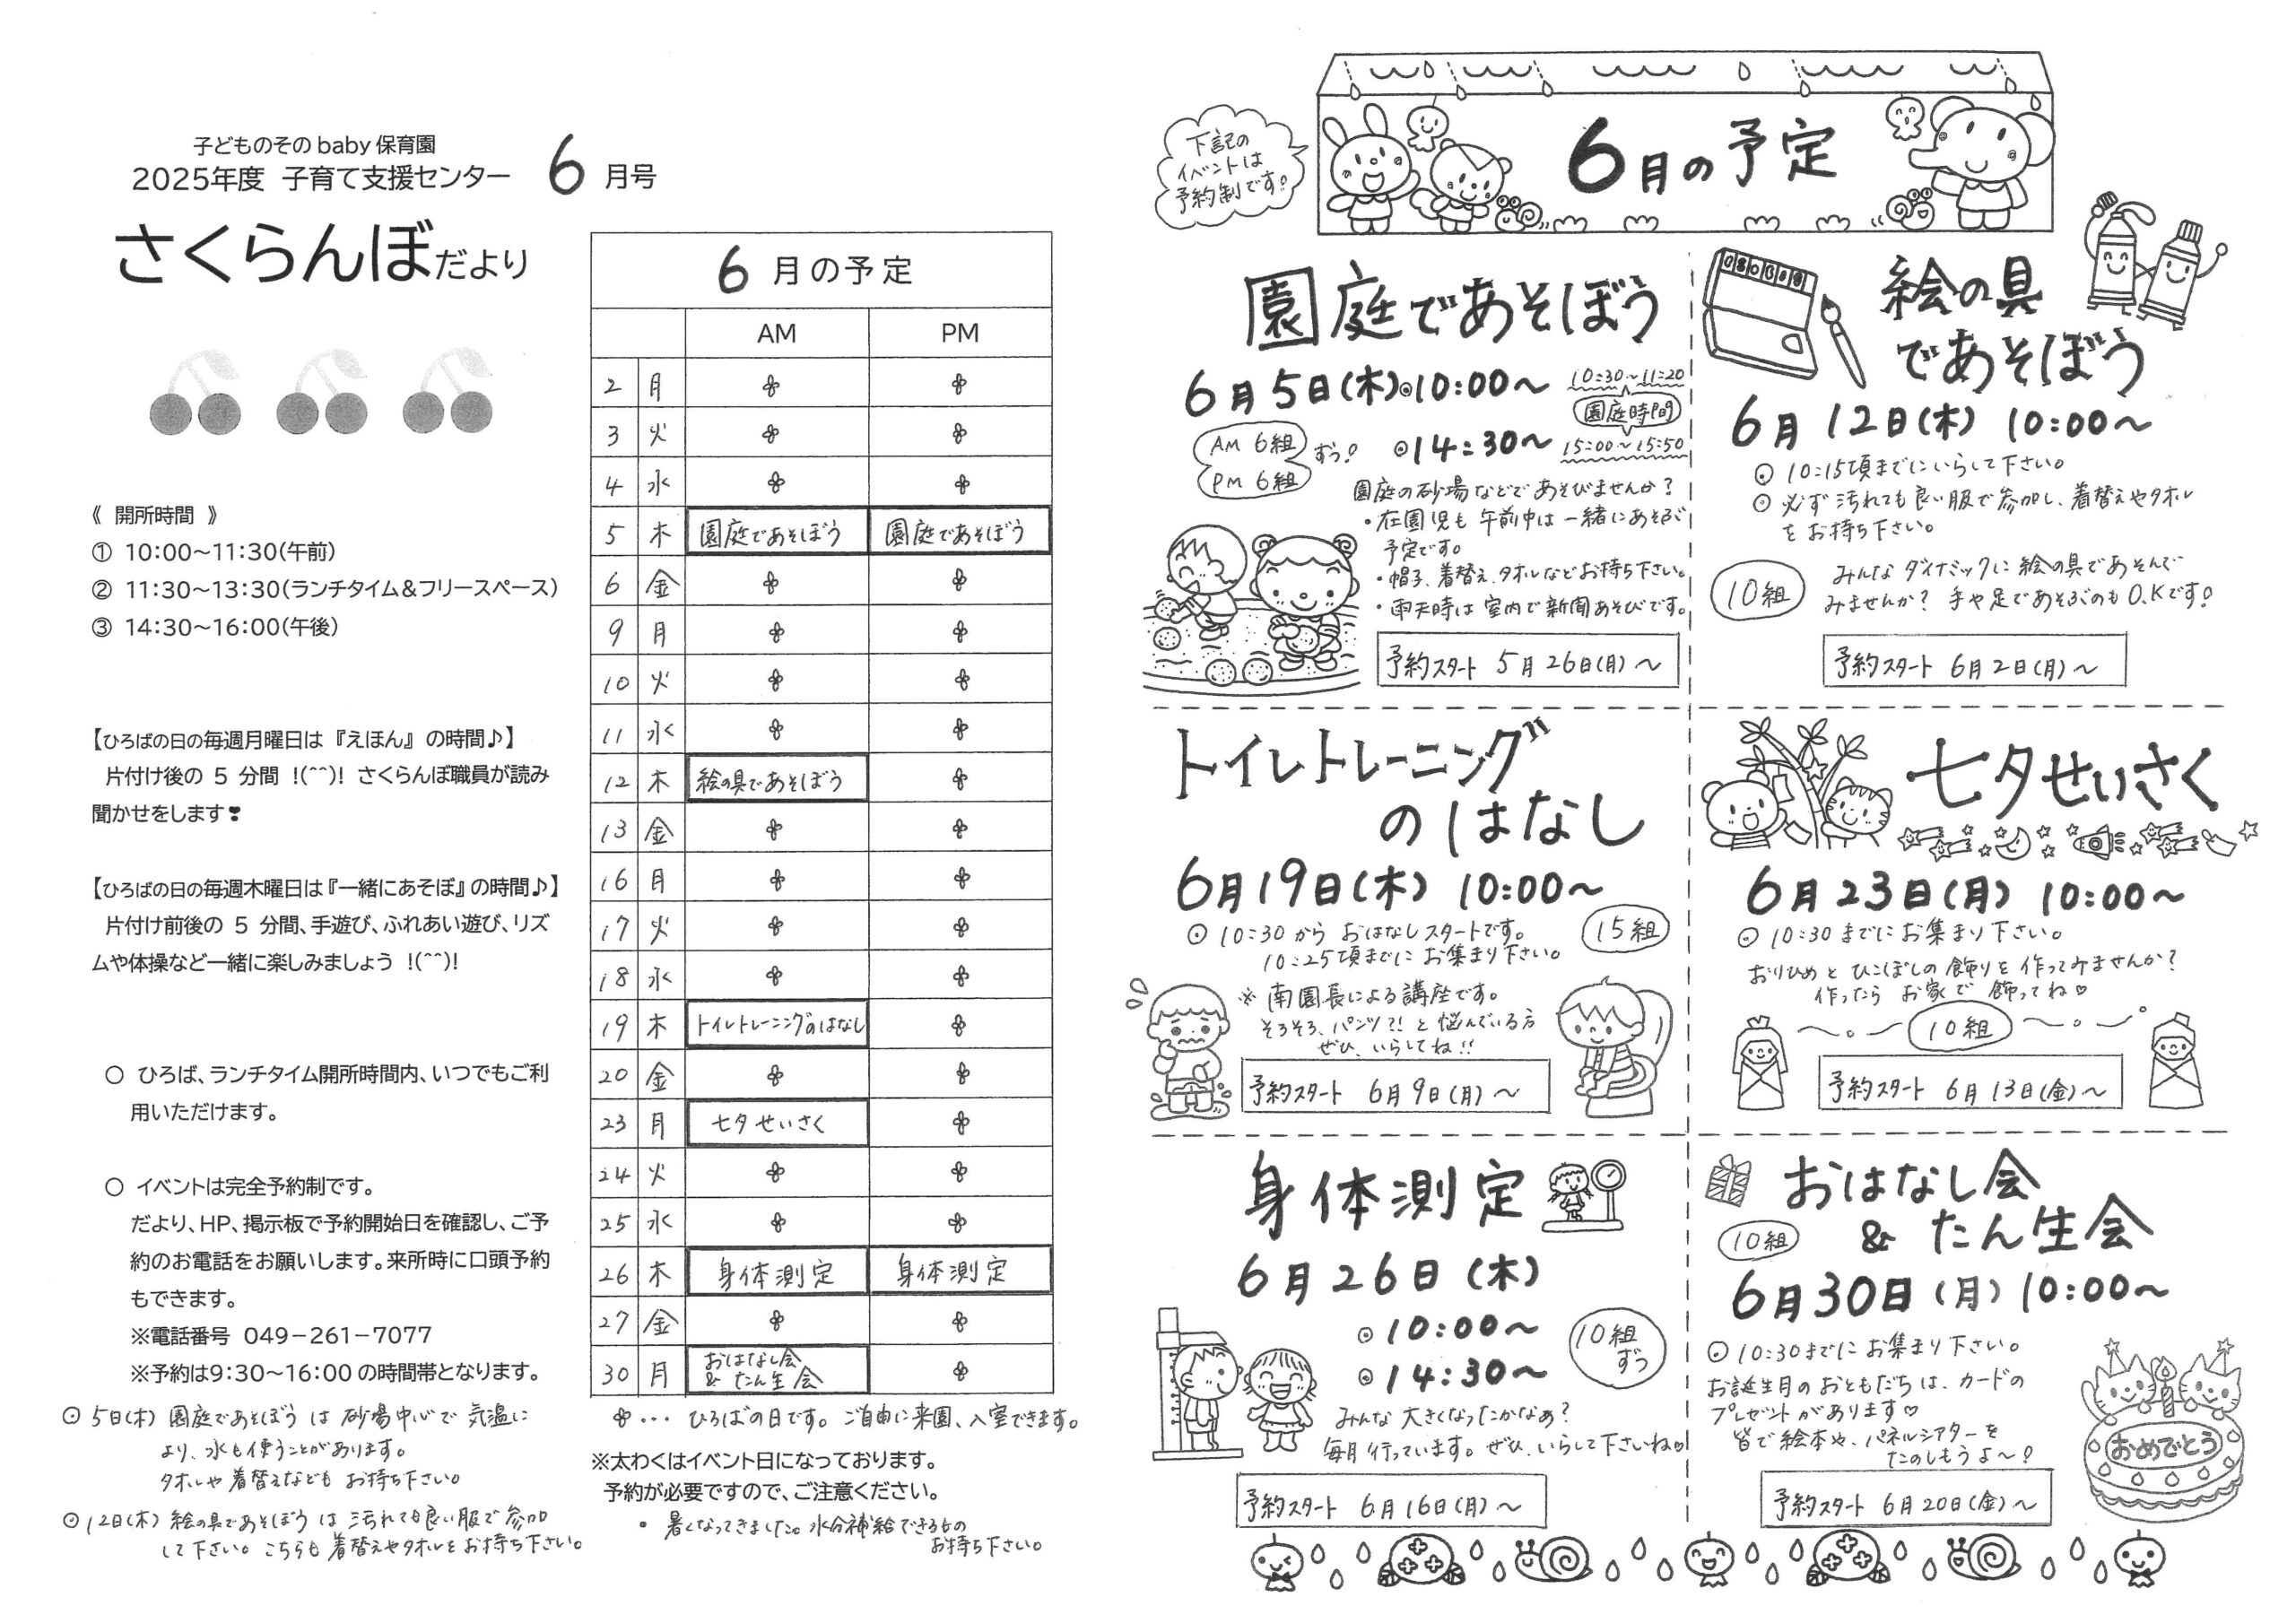 子どものそのbaby保育園
2025年度 子育て支援センター 6月号
さくらんぼだより
《 開所時間 》
① 10:00～11:30(午前)
② 11:30～13:30(ランチタイム＆フリースペース)
③ 14:30～16:00(午後)
【ひろばの日の毎週月曜日は『えほん』の時間♪】
片付け後の 5 分間 !(^^)! さくらんぼ職員が読み
聞かせをします❣
【ひろばの日の毎週木曜日は『一緒にあそぼ』の時間♪】
片付け前後の 5 分間、手遊び、ふれあい遊び、リズ
ムや体操など一緒に楽しみましょう !(^^)!
○ ひろば、ランチタイム開所時間内、いつでもご利
用いただけます。
○ イベントは完全予約制です。
だより、HP、掲示板で予約開始日を確認し、ご予
約のお電話をお願いします。来所時に口頭予約
もできます。
※電話番号 049－261－7077
※予約は9:30～16:00の時間帯となります。
◎ 5日(木) 園庭であそぼう は 砂場中心で 気温に
より、水も使うことがあります。
タオルや着替えなども お持ち下さい。
◎ 12日(木) 絵の具であそぼう は 汚れても良い服で参加
して下さい。こちらも着替えやタオルをお持ち下さい。
6 月の予定
AM PM
2 月
3 火
4 水
5 木 園庭であそぼう 園庭であそぼう
6 金
9 月
10 火
11 水
12 木 絵の具であそぼう
13 金
16 月
17 火
18 水
19 木 トイレトレーニングのはなし
20 金
23 月 七夕せいさく
24 火
25 水
26 木 身体測定 身体測定
27 金
30 月 おはなし会
& たん生会
… ひろばの日です。ご自由に来園、入室できます。
※太わくはイベント日になっております。
予約が必要ですので、ご注意ください。
・ 暑くなってきました。水分補給できるもの
お持ち下さい。
下記の
イベントは
予約制です!
6月の予定
園庭であそぼう
6月5日(木) ◎10:00～ 10:30～11:20
園庭時間
◎14:30～ 15:00～15:50
AM 6組
PM 6組
ずつ!
園庭の砂場などで あそびませんか?
・在園児も 午前中は 一緒にあそぶ
予定です。
・帽子、着替え、タオルなどお持ち下さい。
・雨天時は 室内で 新聞あそびです。
予約スタート 5月26日(月)～
絵の具
であそぼう
6月12日(木) 10:00～
◎ 10:15頃までにいらして下さい。
◎ 必ず汚れても良い服で参加し、着替えやタオル
をお持ち下さい。
10組
みんな ダイナミックに 絵の具であそんで
みませんか? 手や足であそぶのもO.Kです!
予約スタート 6月2日(月)～
トイレトレーニング
のはなし
6月19日(木) 10:00～
◎ 10:30から おはなしスタートです。
10:25頃までに お集まり下さい。
15組
※ 南園長による講座です。
そろそろ、パンツ?! と 悩んでいる方
ぜひ、いらしてね!!
予約スタート 6月9日(月)～
七夕せいさく
6月23日(月) 10:00～
◎ 10:30までにお集まり下さい。
おりひめと ひこぼしの飾りを作ってみませんか?
作ったら お家で 飾ってね♡
10組
予約スタート 6月13日(金)～
身体測定
6月26日(木)
◎10:00～
◎14:30～
10組
ずつ
みんな 大きくなったかなぁ?
毎月行っています。ぜひ、いらして下さいね♡
予約スタート 6月16日(月)～
おはなし会
& たん生会
10組
6月30日(月) 10:00～
◎ 10:30までに お集まり下さい。
お誕生月の おともだちは、カードの
プレゼントがあります♡
皆で絵本や、パネルシアターを
たのしもうよ～!
おめでとう
予約スタート 6月20日(金)～